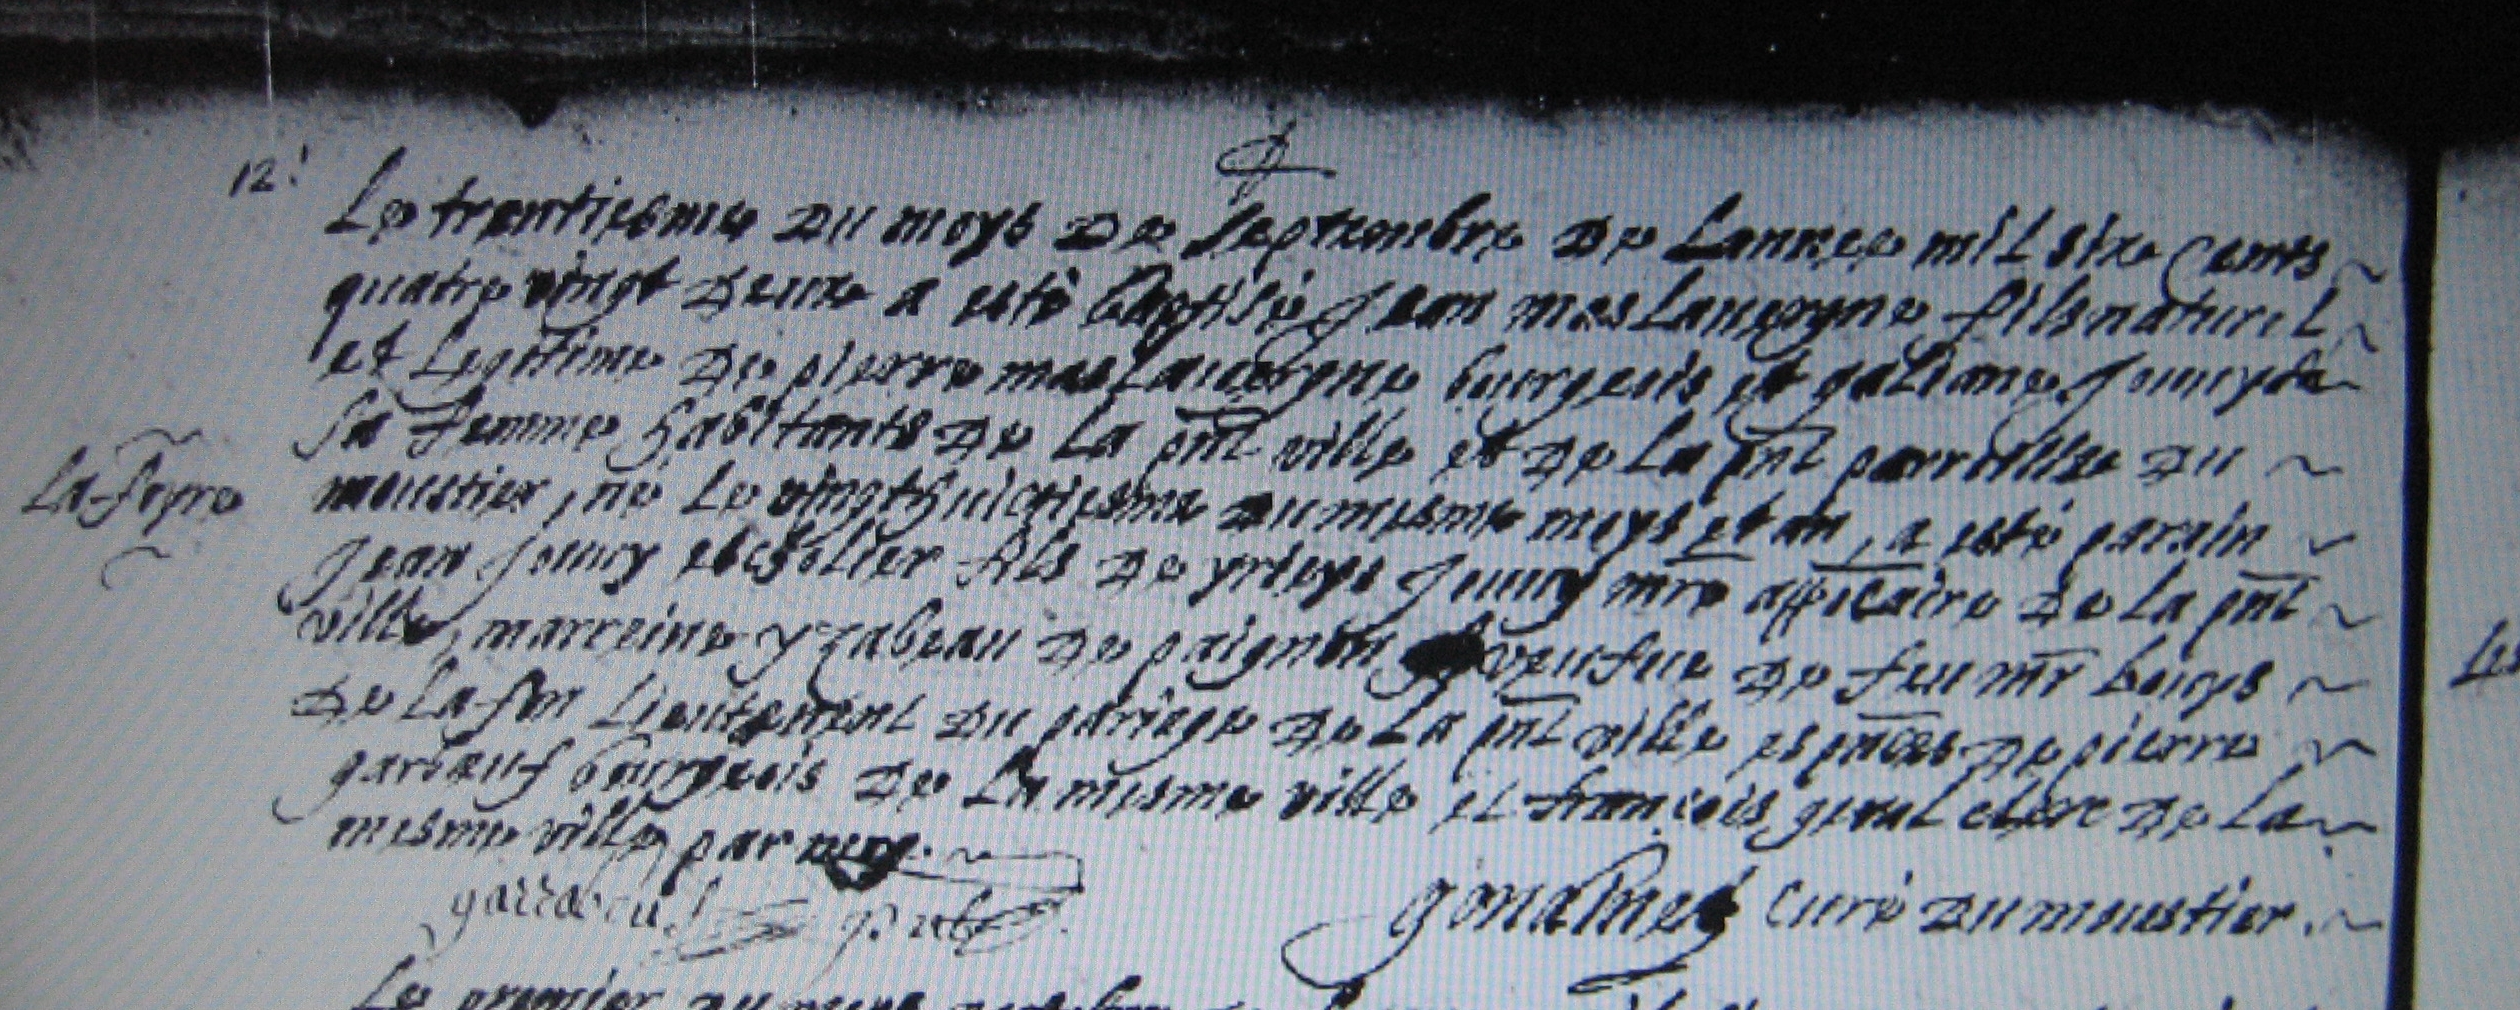 12!
Le trentiesme du moys de Septembre de Lannee mil six cents
quatre vingt deux a esté baptisé Jean maslauvergne fils naturel
et Legitime de pierre maslauvergne bourgeois et galiane Joucy de
sa femme habitants de La pnt ville et de La pnt parroisse du
La foyre
moustier, né Le vingthuictiesme du mesme moys et an, a esté parain
Jean Joucy escholier fils de yrieys Joucy mre appicaire de La pnt
ville, marreine yzabeau de paignon veufue de feu mr bouys
de La fon Lieutenent du pariege de La pnt ville es pnces de pierre
garrabeuf bourgeois de La mesme ville et francois geral clerc de La
mesme ville par moy.
garrabeuf
gondinet curé du moustier.
Le premier du moys